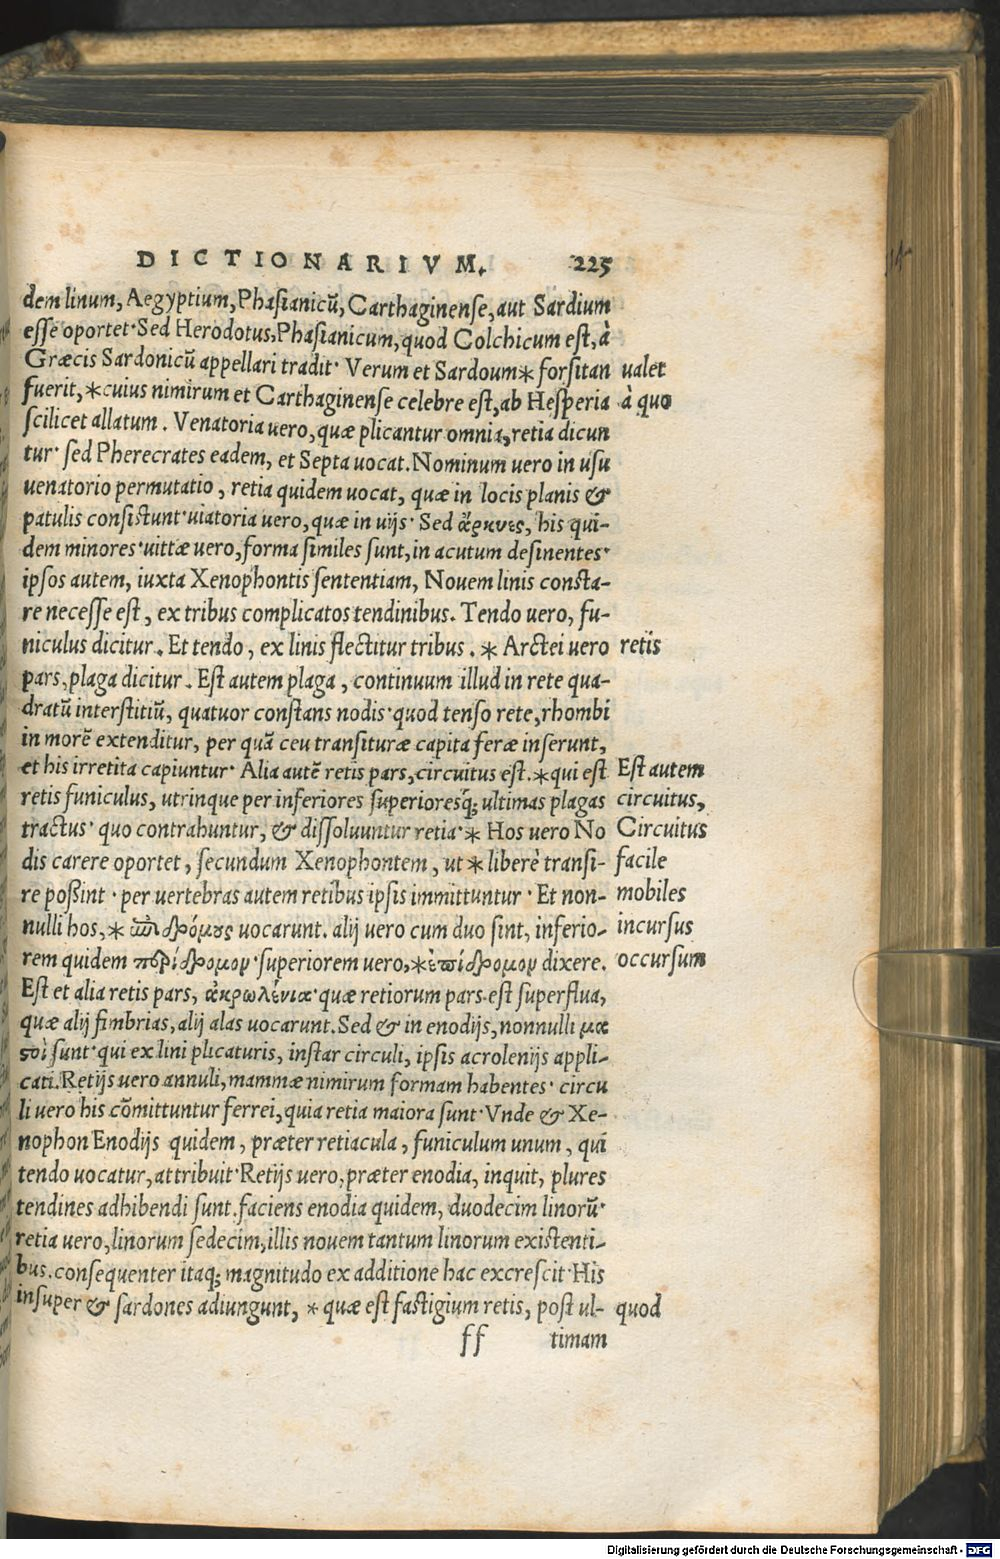 DICTIONARIVM. 225
dem linum, Aegyptium, Phasianicũ, Carthaginense, aut Sardium
esse oportet· Sed Herodotus, Phasianicum, quod Colchicum est, à
Græcis Sardonicũ appellari tradit· Verum et Sardoum* forsitan ualet
fuerit, *cuius nimirum et Carthaginense celebre est, ab Hesperia à quo
scilicet allatum. Venatoria uero, quæ plicantur omnia, retia dicun
tur· sed Pherecrates eadem, et Septa uocat. Nominum uero in usu
uenatorio permutatio, retia quidem uocat, quæ in locis planis &
patulis consistunt· uiatoria uero, quæ in uijs· Sed ἄρκυες, his qui-
dem minores· uittæ uero, forma similes sunt, in acutum desinentes·
ipsos autem, iuxta Xenophontis sententiam, Nouem linis consta-
re necesse est, ex tribus complicatos tendinibus. Tendo uero, fu-
niculus dicitur. Et tendo, ex linis flectitur tribus. * Arctei uero retis
pars, plaga dicitur. Est autem plaga, continuum illud in rete qua-
dratũ interstitiũ, quatuor constans nodis· quod tenso rete, rhombi
in morẽ extenditur, per quã ceu transituræ capita feræ inserunt,
et his irretita capiuntur· Alia autẽ retis pars, circuitus est. *qui est Est autem
retis funiculus, utrinque per inferiores superioresq; ultimas plagas circuitus,
tractus· quo contrahuntur, & dissoluuntur retia· * Hos uero No Circuitus
dis carere oportet, secundum Xenophontem, ut * liberè transi- facile
re possint· per uertebras autem retibus ipsis immittuntur· Et non- mobiles
nulli hos, * ἐπιδρόμους uocarunt. alij uero cum duo sint, inferio- incursus
rem quidem περίδρομον· superiorem uero, *ἐπίδρομον dixere. occursum
Est et alia retis pars, ἀκρωλένια· quæ retiorum pars est superflua,
quæ alij fimbrias, alij alas uocarunt. Sed & in enodijs, nonnulli μα
στοὶ sunt· qui ex lini plicaturis, instar circuli, ipsis acrolenijs appli-
cati. Retijs uero annuli, mammæ nimirum formam habentes· circu
li uero his cõmittuntur ferrei, quia retia maiora sunt· Vnde & Xe-
nophon Enodijs quidem, præter retiacula, funiculum unum, qui
tendo uocatur, attribuit· Retijs uero, præter enodia, inquit, plures
tendines adhibendi sunt. faciens enodia quidem, duodecim linorũ·
retia uero, linorum sedecim, illis nouem tantum linorum existenti-
bus. consequenter itaq; magnitudo ex additione hac excrescit· His
insuper & sardones adiungunt, * quæ est fastigium retis, post ul- quod
ff timam
Digitalisierung gefördert durch die Deutsche Forschungsgemeinschaft - DFG